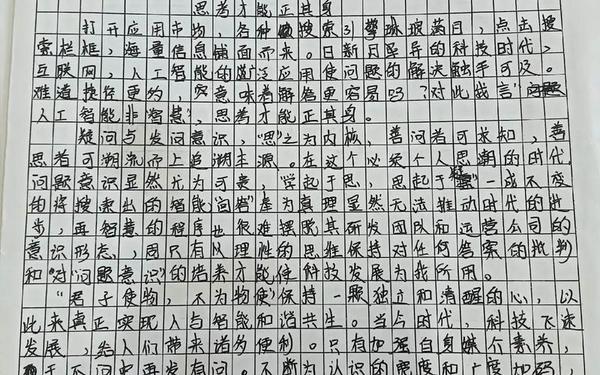 思考才能正其身
打开应用市场，各种搜索引擎琳琅满目，点击搜
索栏框，海量信息铺面而来。日新月异的科技时代，
互联网，人工智能的广泛应用使问题的解决触手可及。
难道操作更约，意味着解答更容易吗？对此我言
人工智能非智慧，思考才能正其身。
疑问与发问意识，"思"之为内核，善问者可求知，善
思者可溯流而上追溯主源。在这个必须个人思潮的时代
问题意识显然尤为可贵，"学起于思，思起于疑"一成不变
的将搜索出的智能"回答"奉为真理显然无法推动时代的进
步，再智慧的程序也很难摆脱其研发团队和运营公司的
意识形态，同只有以理性的思维保持对任何答案的批判
和"对"问题意识"的培养才能使科技发展为我所用。
"君子使物，不为物使"保持一颗独立和清醒的心，以
此来真正实现人与智能和谐共生。当今时代，科技飞速
发展，给人们带来诸多便利。只有加强自身素养，
于不问中再发有问。不断为认识的宽度和广度加码，